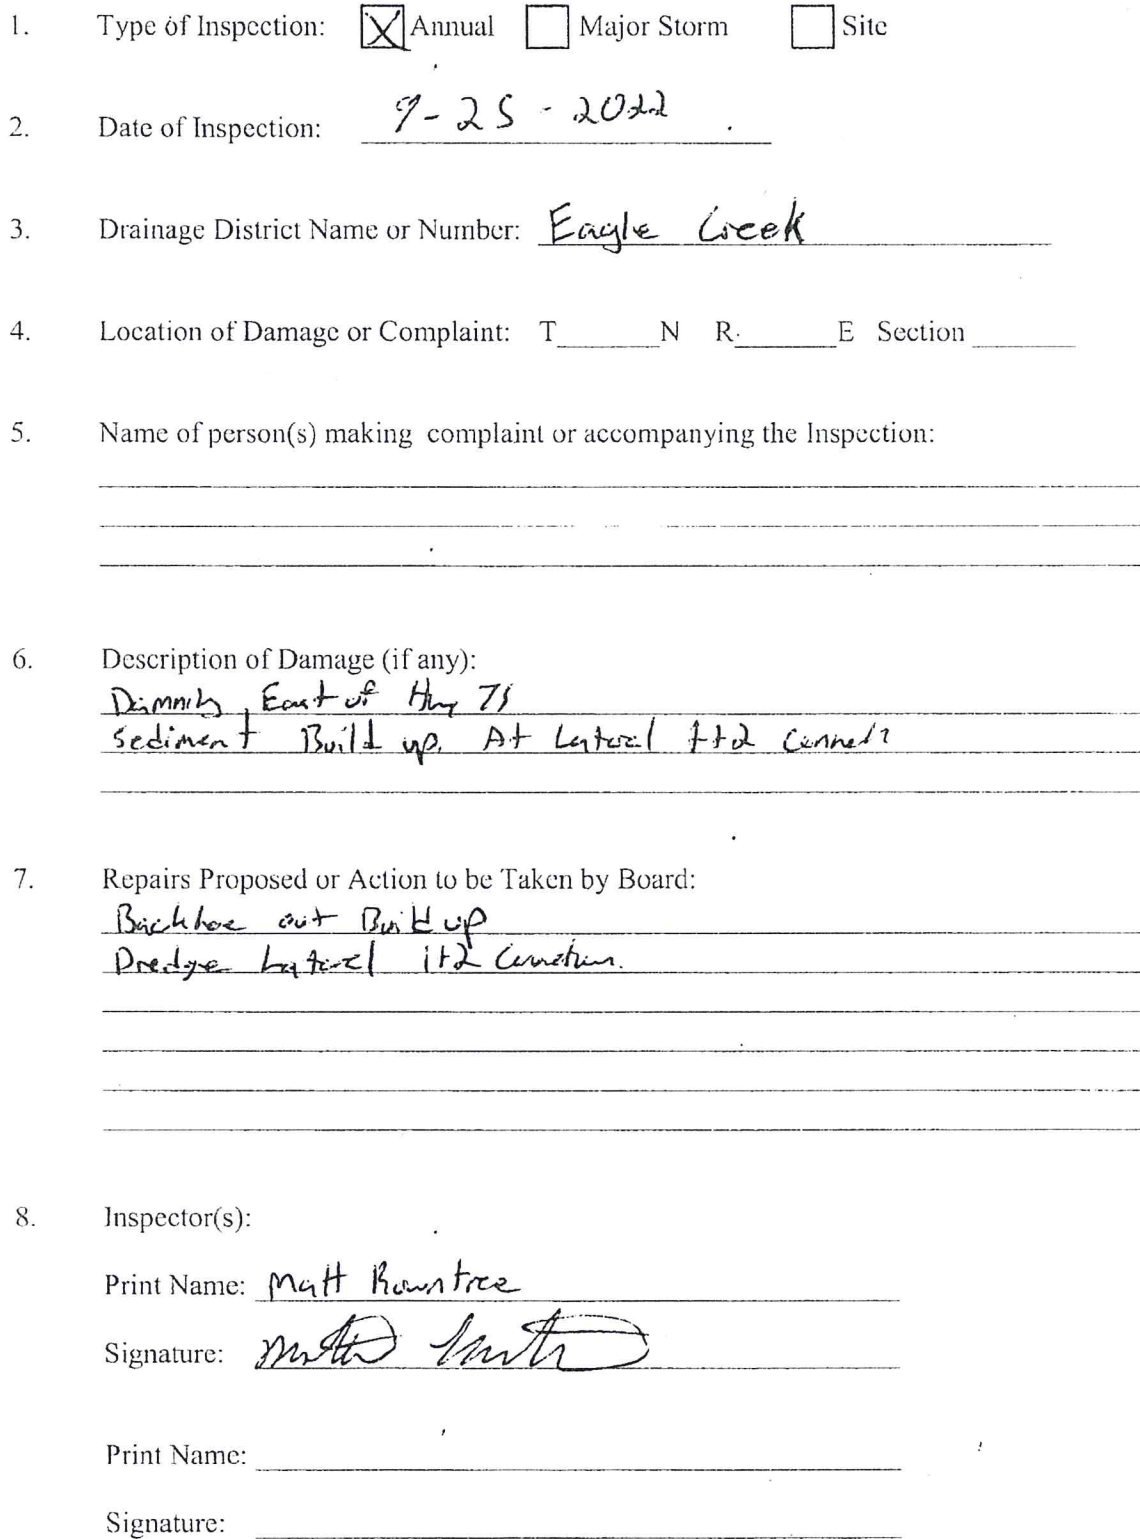 1. Type of Inspection: X Annual Major Storm Site
2. Date of Inspection: 9-25-2022
3. Drainage District Name or Number: Eagle Creek
4. Location of Damage or Complaint: T N R E Section
5. Name of person(s) making complaint or accompanying the Inspection:
6. Description of Damage (if any):
East of Hwy 71
Sediment Build up. At Lateral
7. Repairs Proposed or Action to be Taken by Board:
Backhoe out Build up
Dredge Lateral 1+2
8. Inspector(s):
Print Name: Matt Rowntree
Signature:
Print Name:
Signature: